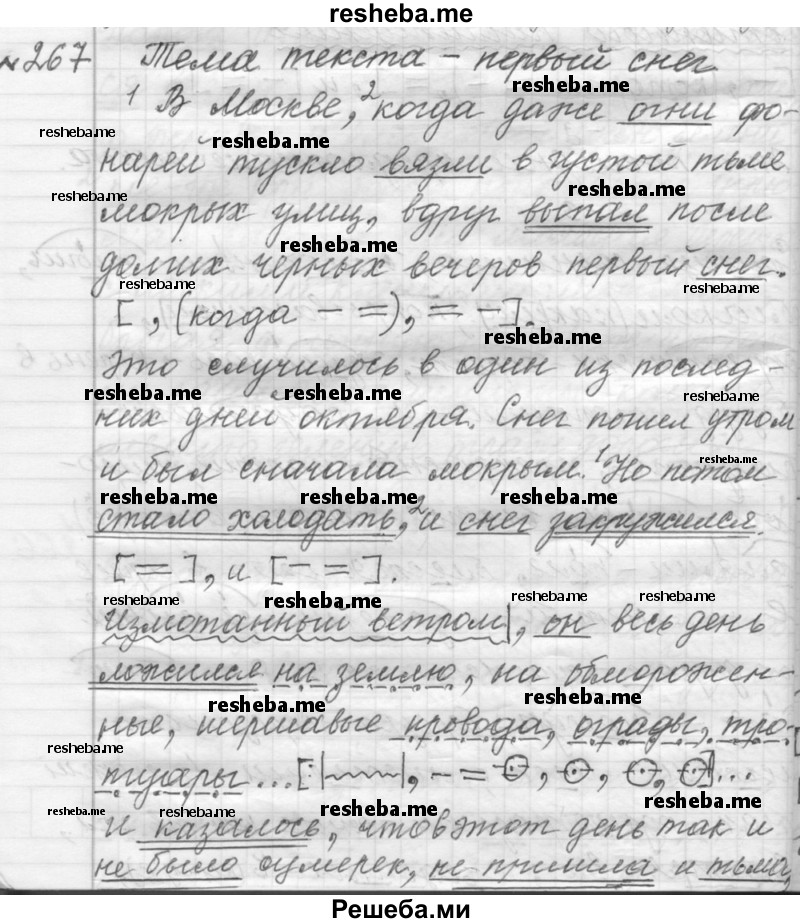 resheba.me
№267 Тема текста – первый снег
¹ В Москве, ² когда даже огни фо-
нарей тускло вязли в густой тьме
мокрых улиц, вдруг выпал после
долгих черных вечеров первый снег.
[ , (когда – =), = –].
Это случилось в один из послед-
них дней октября. Снег пошел утром
и был сначала мокрым. ¹Но потом
стало холодать, ² и снег закружился.
[=], и [– =].
Измотанный ветром|, он весь день
ложился на землю, на обморожен-
ные, шершавые провода, ограды, тро-
туары...[:|~~~~|, – = O, O, O, O]...
И казалось, что в этот день так и
не было сумерек, не пришла и тьма,
Решеба.ми